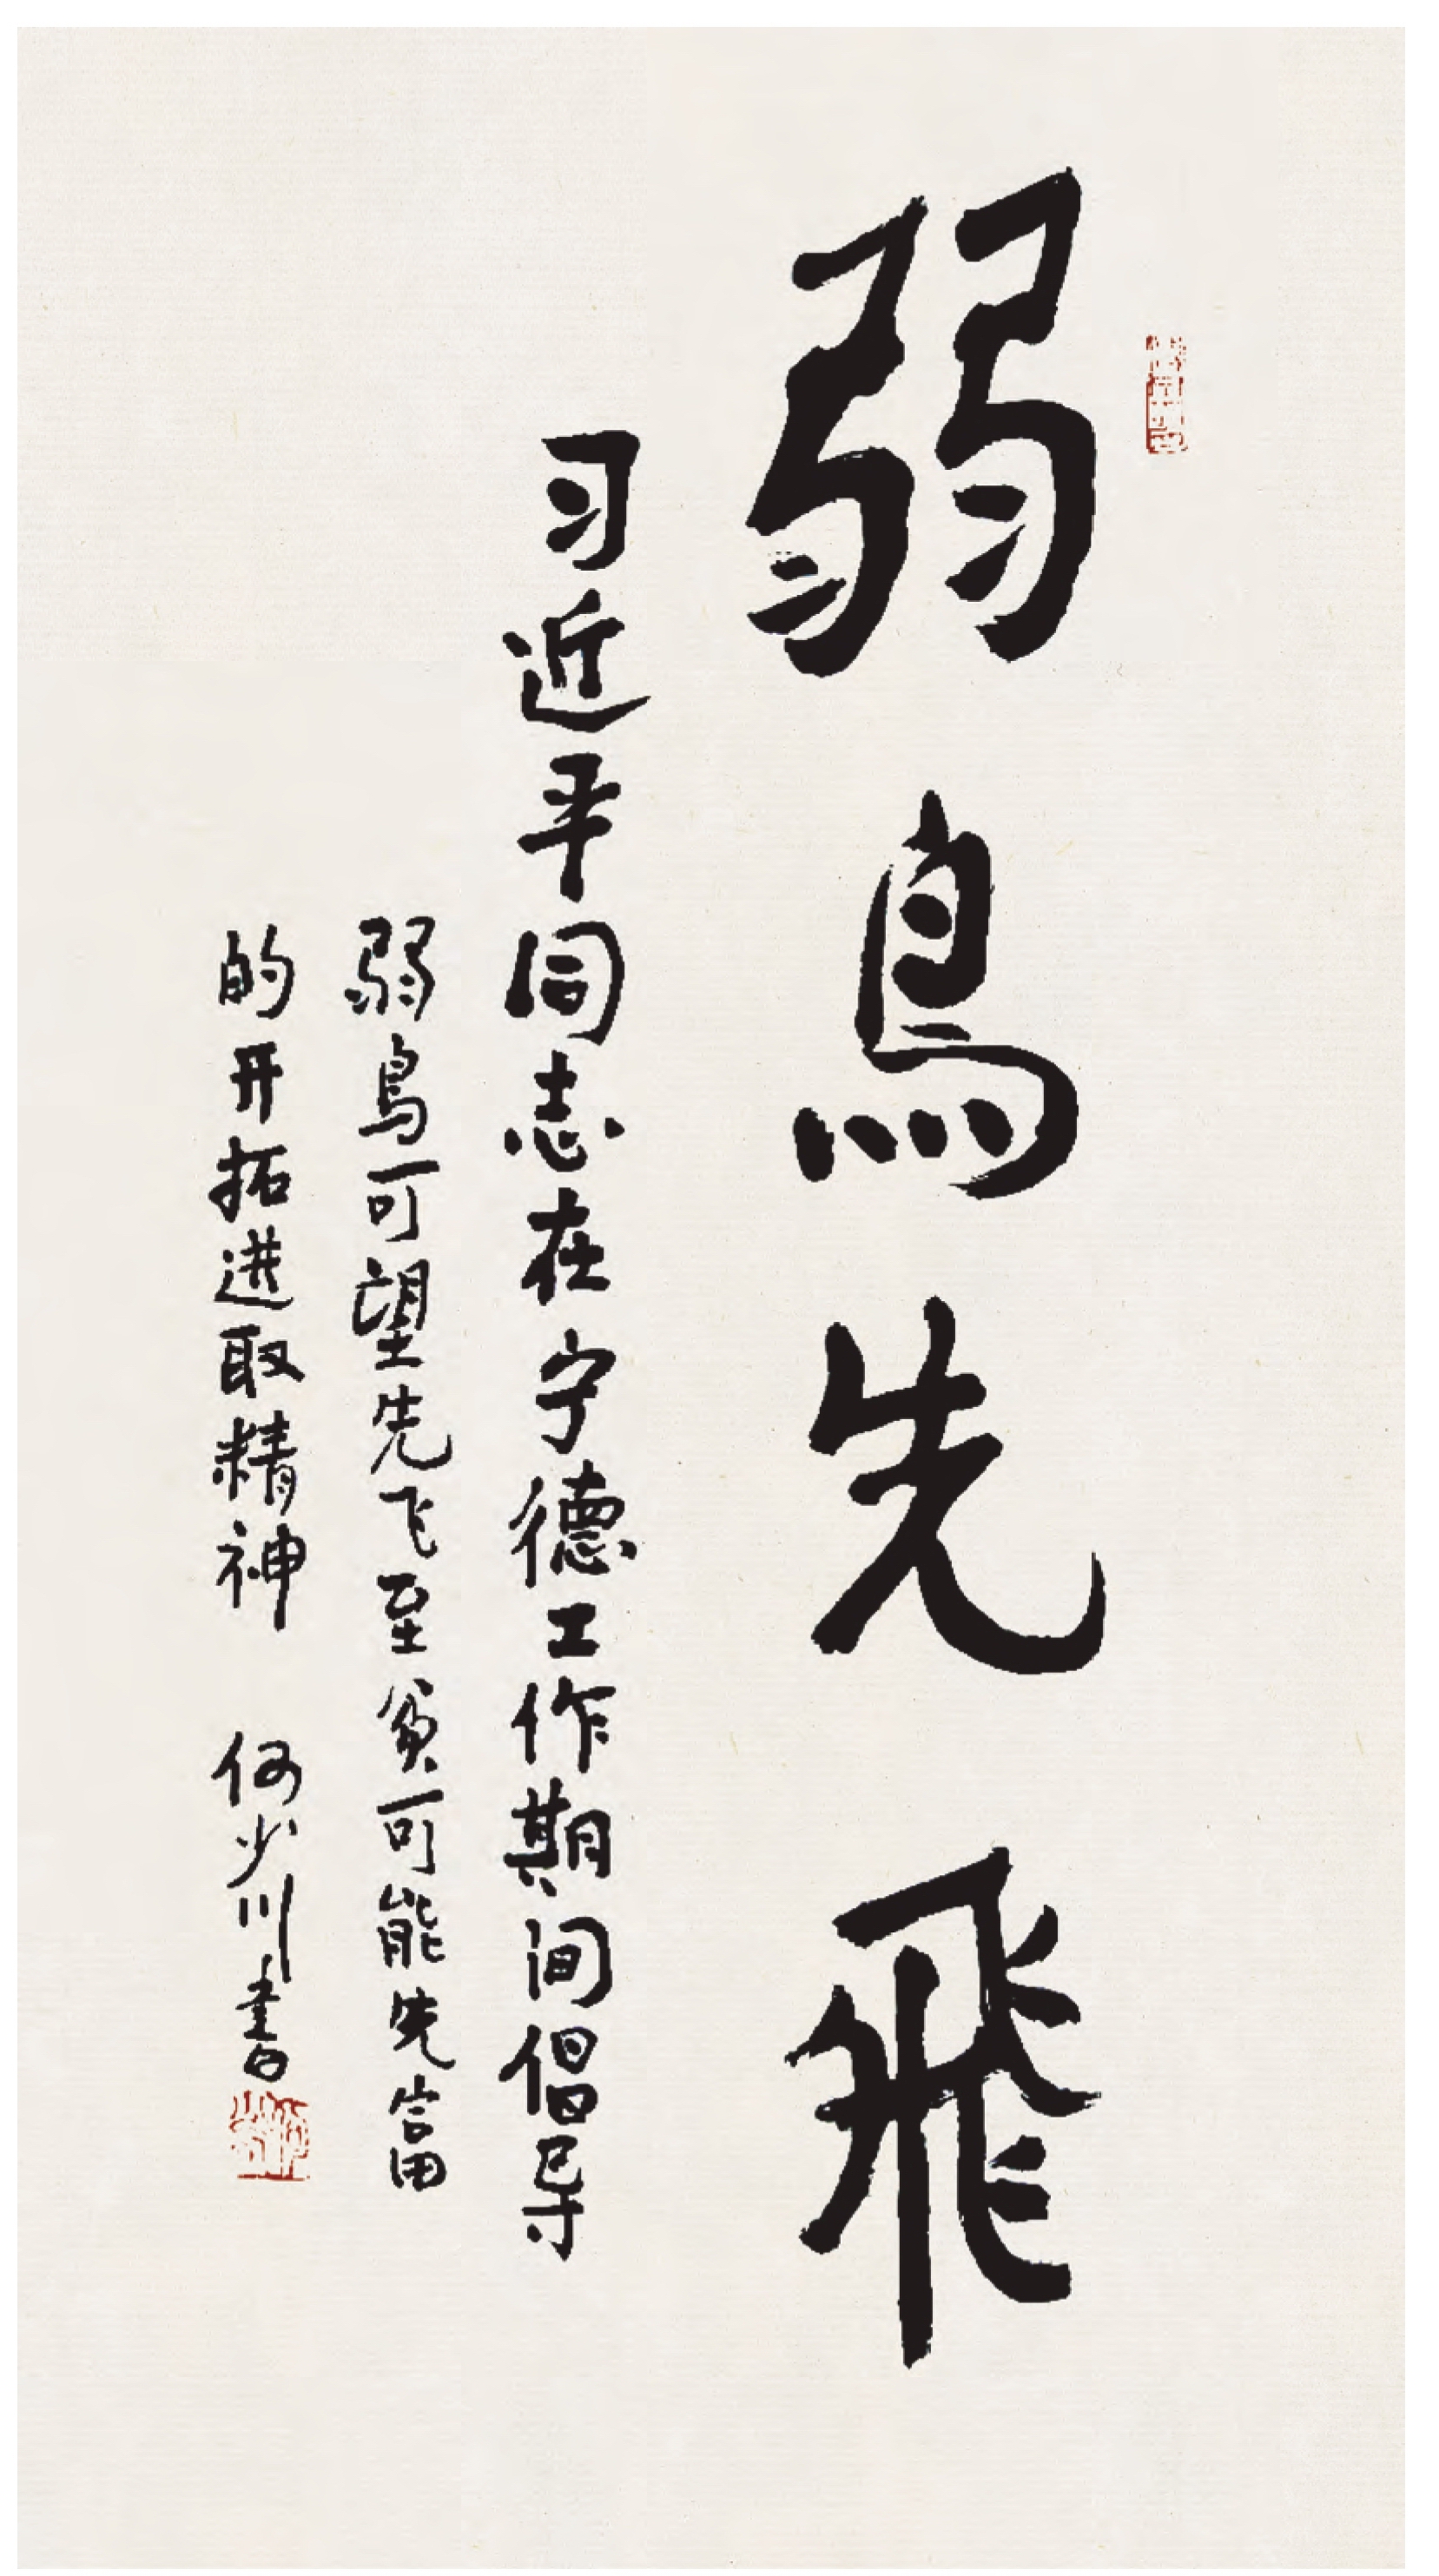 弱鳥先飛
习近平同志在宁德工作期间倡导
弱鳥可望先飞至贫可能先富
的开拓进取精神 何少川书